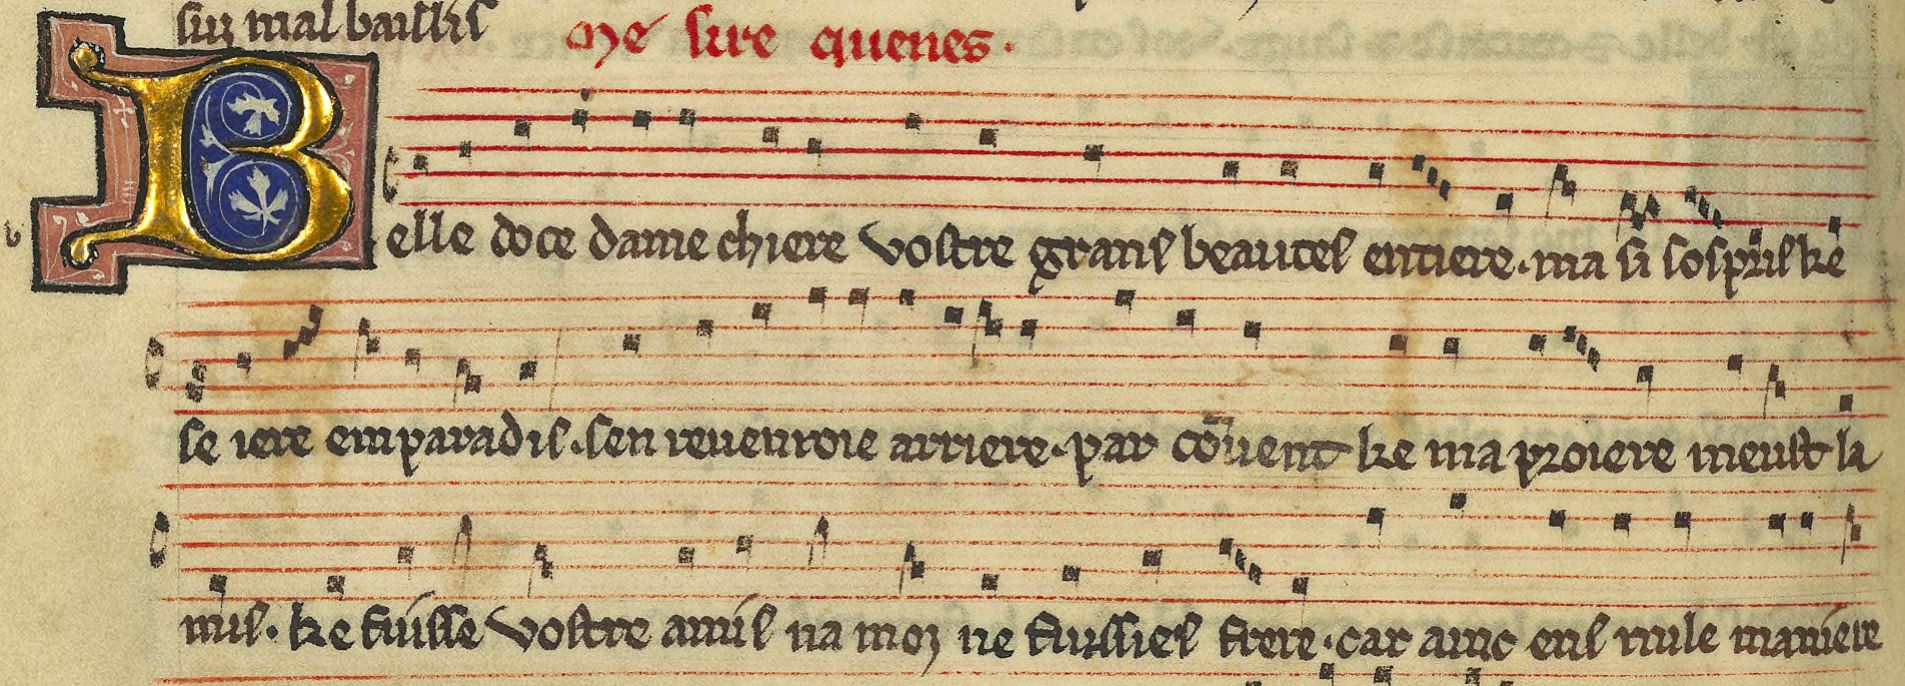 sui mal baillis Me sire quenes.
Belle doce dame chiere vostre grans beautes entiere. ma si sospris ke
se iere em paradis. sen reuenroie arriere. par cōuent ke ma proiere meust la
mis. ke fuisse vostre amis na moi ne fuissies fiere. car ainc enl nule maniere